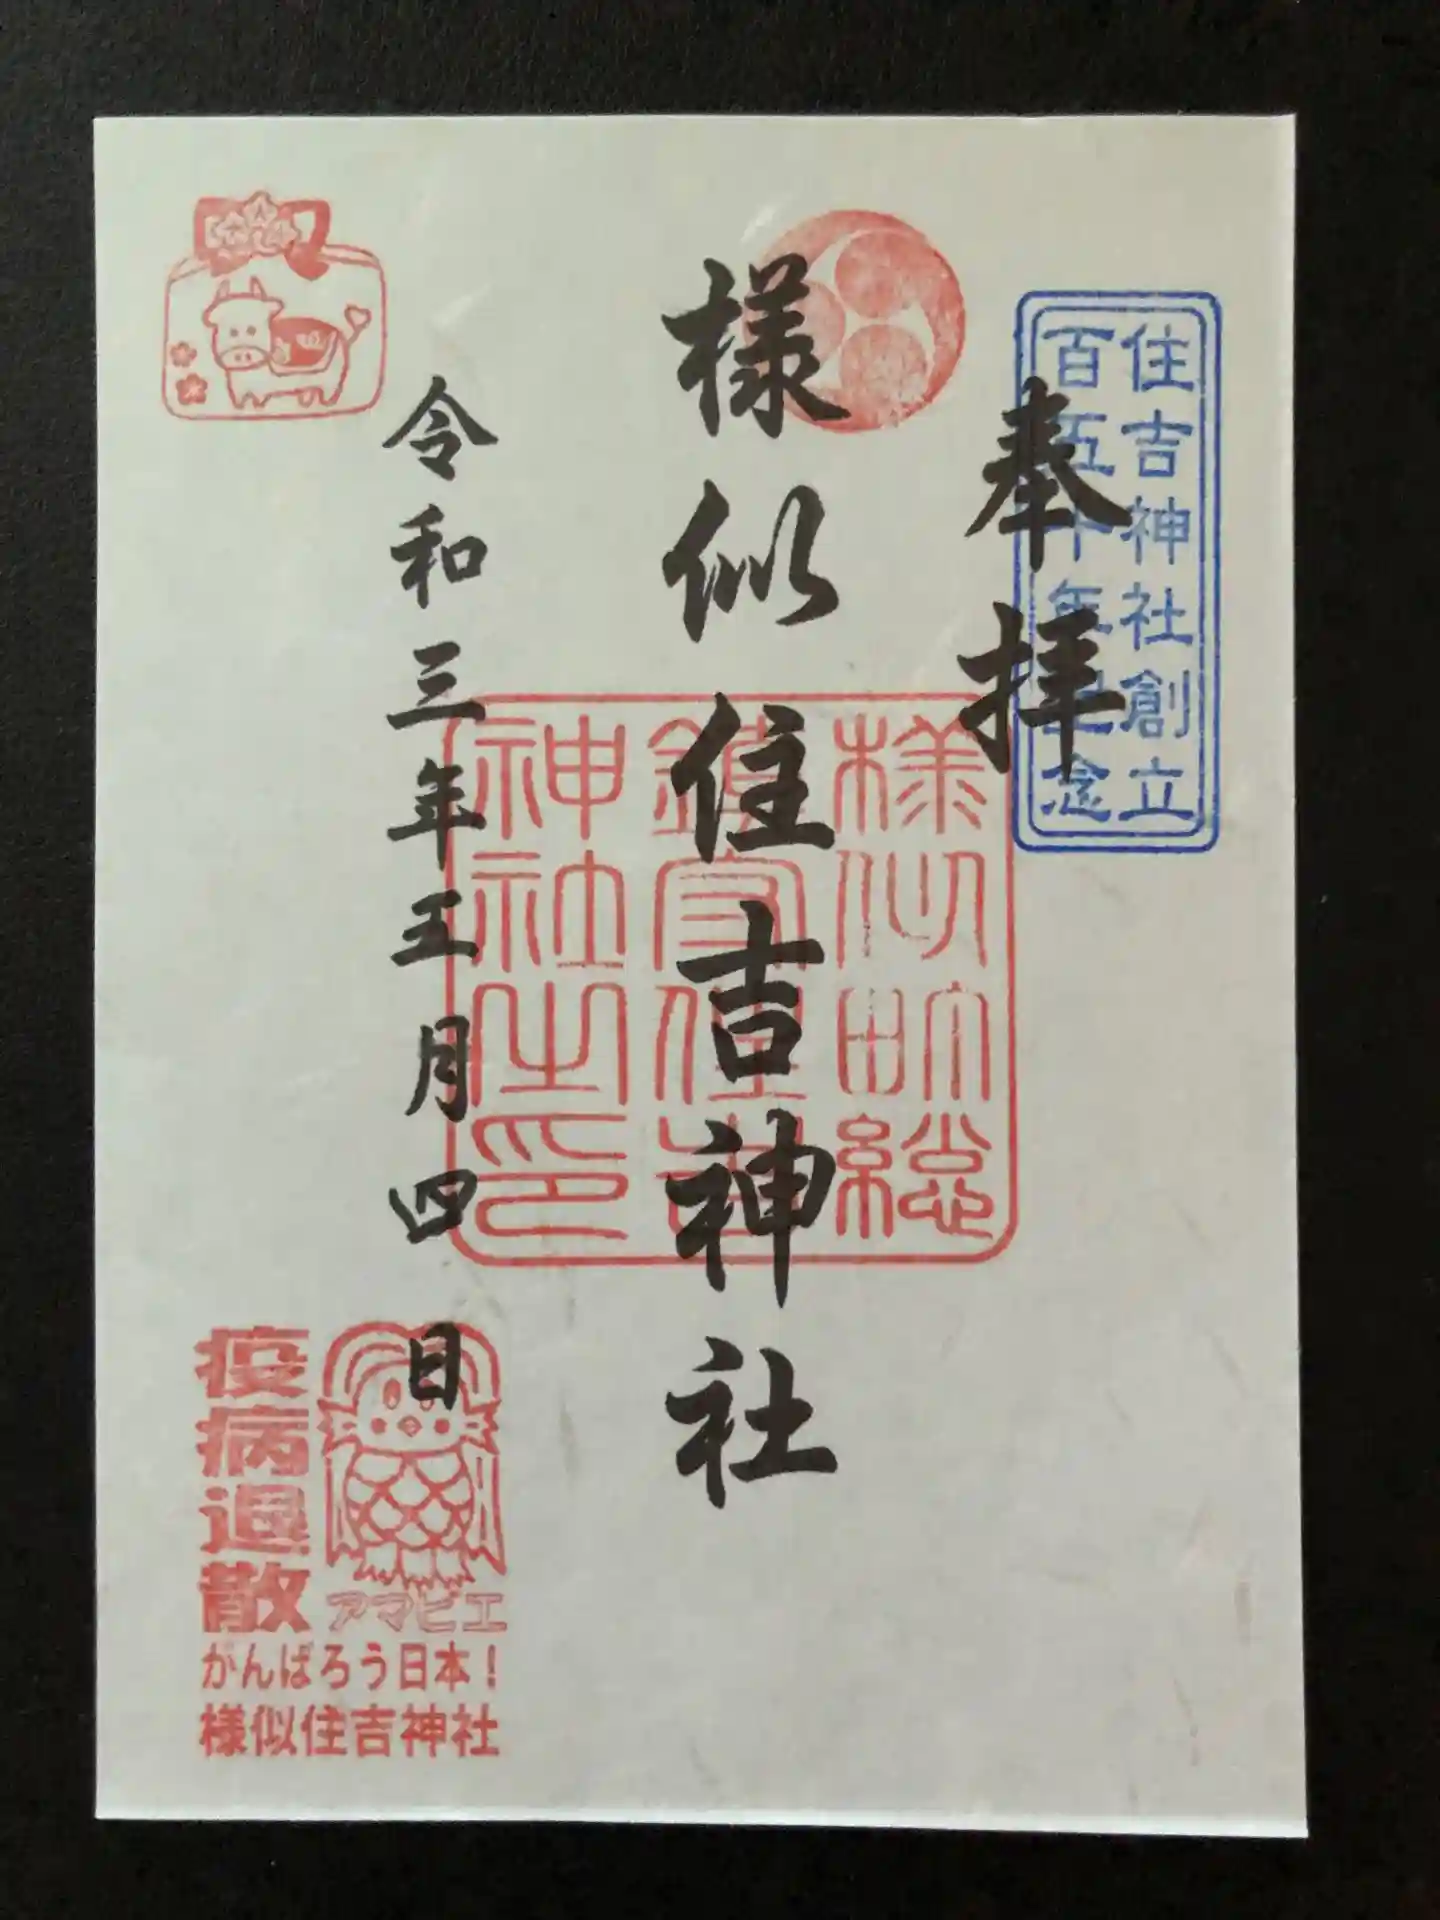 住吉神社創立
百五十年記念
奉拝
様似住吉神社
様似町総
鎮守住吉
神社之印
令和三年五月四日
疫病退散
アマビエ
がんばろう日本！
様似住吉神社